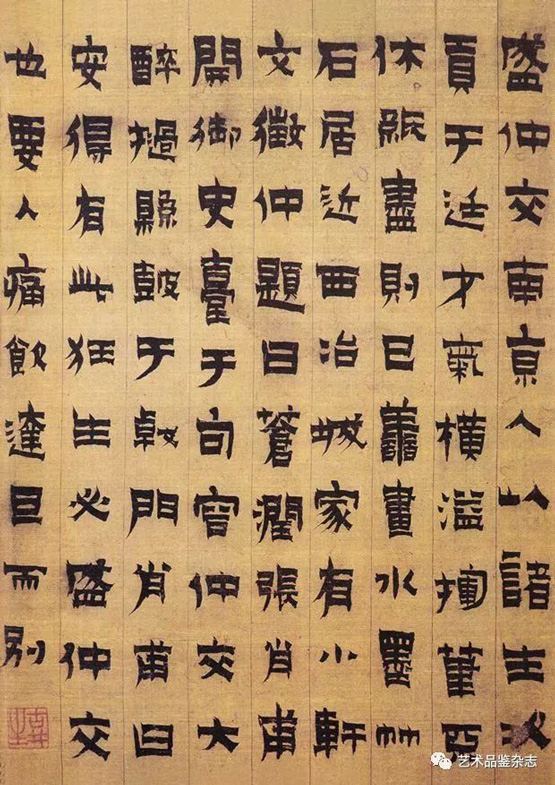 盛仲交南京人以諸生次
貢于廷才氣橫溢揮筆亞
休紙盡則已善畫水墨竹
石居近西冶城家有小軒
文徵仲題曰蒼潤張肖甫
開御史臺于句容仲交大
醉撾縣鼓于戟門肖甫曰
安得有此狂生必盛仲交
也要入痛飲達旦而別
艺术品鉴杂志